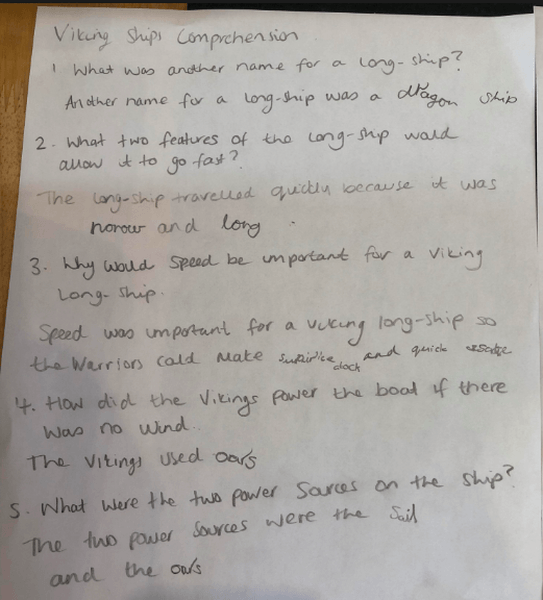 Viking Ships Comprehension
1 What was another name for a long-ship?
Another name for a long-ship was a dragon ship
2. What two features of the long-ship would
allow it to go fast?
The long-ship travelled quickly because it was
norow and long .
3. Why would speed be important for a Viking
Long-ship.
Speed was important for a viking long-ship so
the Warriors could make and quick
4. How did the Vikings power the boat if there
was no wind.
The Vikings used oars
5. What were the two power sources on the ship?
The two power sources were the sail
and the oars